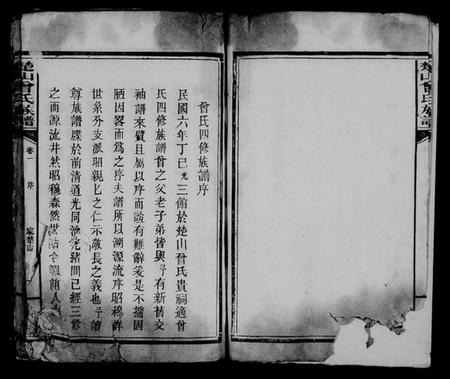 曾氏四修族譜序
民國六年丁巳光三館於楚山曾氏貴祠適曾
氏四修族譜曾之父老子弟皆與予有新舊交
袖譜來質且屬以序而誼有難辭爰是不揣固
陋因畧而爲之序夫譜所以溯源流序昭穆詳
世系分支派昭親親之仁示敬長之義也予讀
尊族譜牒於前清道光同治光緒間已經三修
之而源流井然昭穆森然
前人
楚山曾氏族譜
卷一
序
楚山曾氏族譜